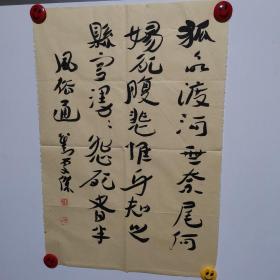 狐欲渡河无奈尾何
妇死腹悲惟身知之
县官漫漫怨死者半
风俗通